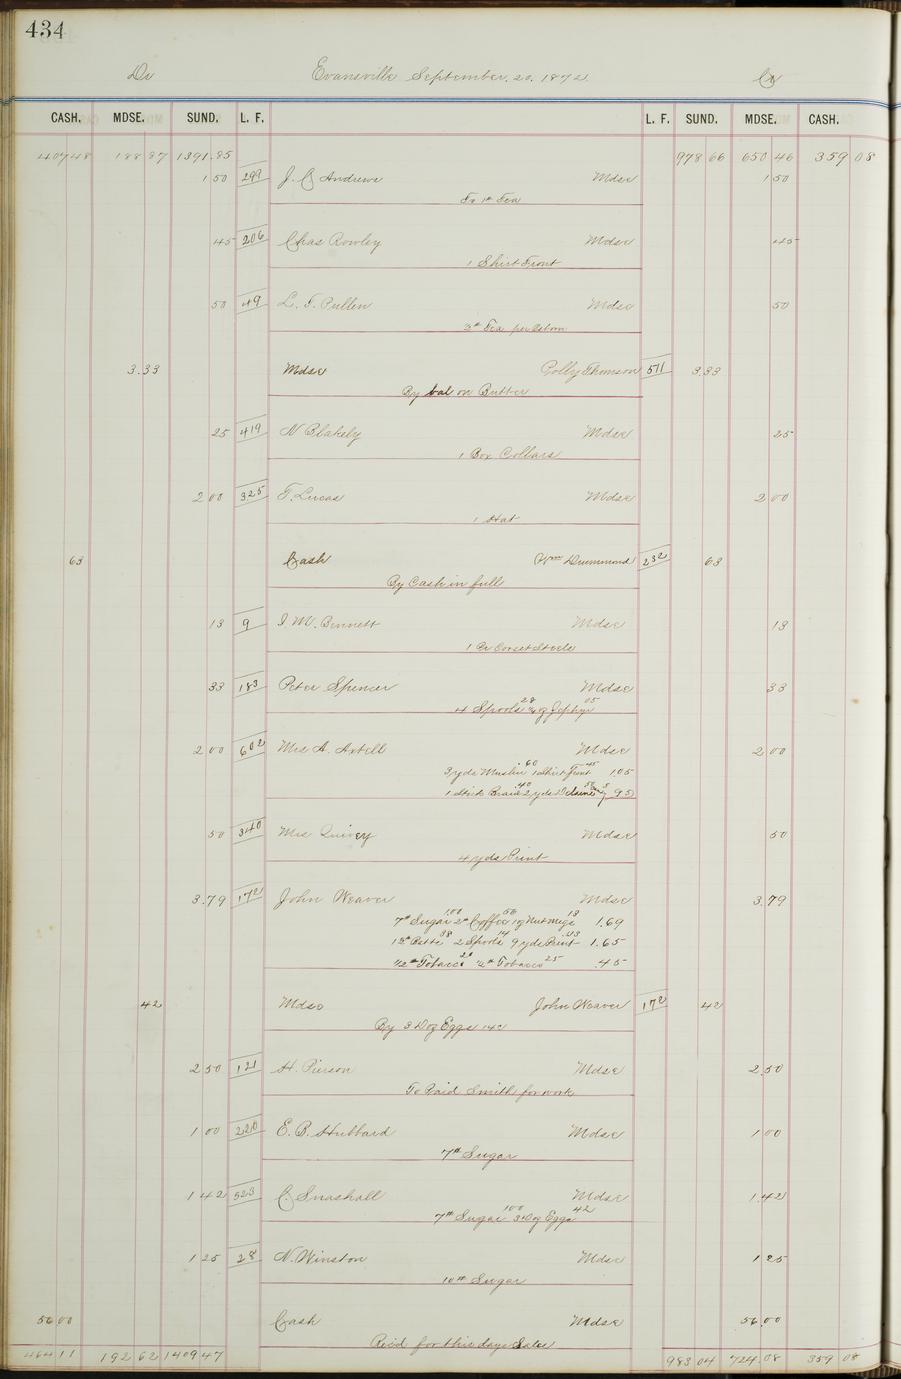 434
Dr Evansville September. 20. 1872 Cr
CASH. MDSE. SUND. L. F. L. F. SUND. MDSE. CASH.
407 48 188 87 1391.85 978 66 650 46 359 08
1 50 299 J. C Andrews Mdse 1 50
To 1# Tea
45 206 Chas Rowley Mdse 45
1 Shirt Front
50 49 L. F. Pullen Mdse 50
Tea per
3.33 Mdse Polly Thomson 511 3.33
By bal on Butter
25 419 N Blakely Mdse 25
1 Box Collars
2 00 325 T. Lucas Mdse 2 00
1 Hat
63 Cash Wm Drummond 232 63
By Cash in full
13 9 I. M. Bennett Mdse 13
1 Pr Corset Steels
33 183 Peter Spencer Mdse 33
4 Spools 28 Zephyr 05
2 00 602 Mrs A. Axtell Mdse 2 00
3 yds Muslin 60 1 Shirt Front 45 1.05
1 Stick Braid 40 2 yds 95
50 340 Mrs Quivey Mdse 50
4 yds Print
3.79 172 John Weaver Mdse 3.79
7# Sugar 1.00 2# Coffee 56 Nutmegs 13 1.69
Batts 38 2 Spools 14 9 yds Print 1.65
1/2# Tobacco 20 1/2# Tobacco 25 .45
42 Mdse John Weaver 172 42
By 3 Doz Eggs 14c
2 50 121 H. Pierson Mdse 2.50
To Paid Smith for work
1 00 220 E. B. Hubbard Mdse 1 00
7# Sugar
1 42 523 C. Snashall Mdse 1.42
7# Sugar 100 3 Doz Eggs 42
1 25 28 N. Winston Mdse 1 25
10# Sugar
56 00 Cash Mdse 56.00
Rec'd for this days Sales
464 11 192 62 1409 47 983 04 724.08 359 08